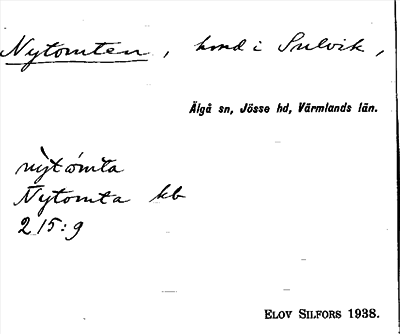 Nytomten, hmd i Sulvik,
Älgå sn, Jösse hd, Värmlands län.
nỳtómta
Nytomta kb
215:9
ELOV SILFORS 1938.